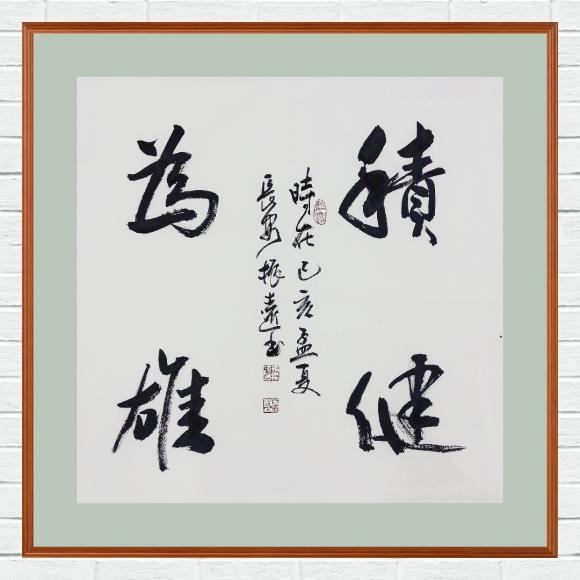 積健
時在己亥孟夏
長安振遠書
為雄